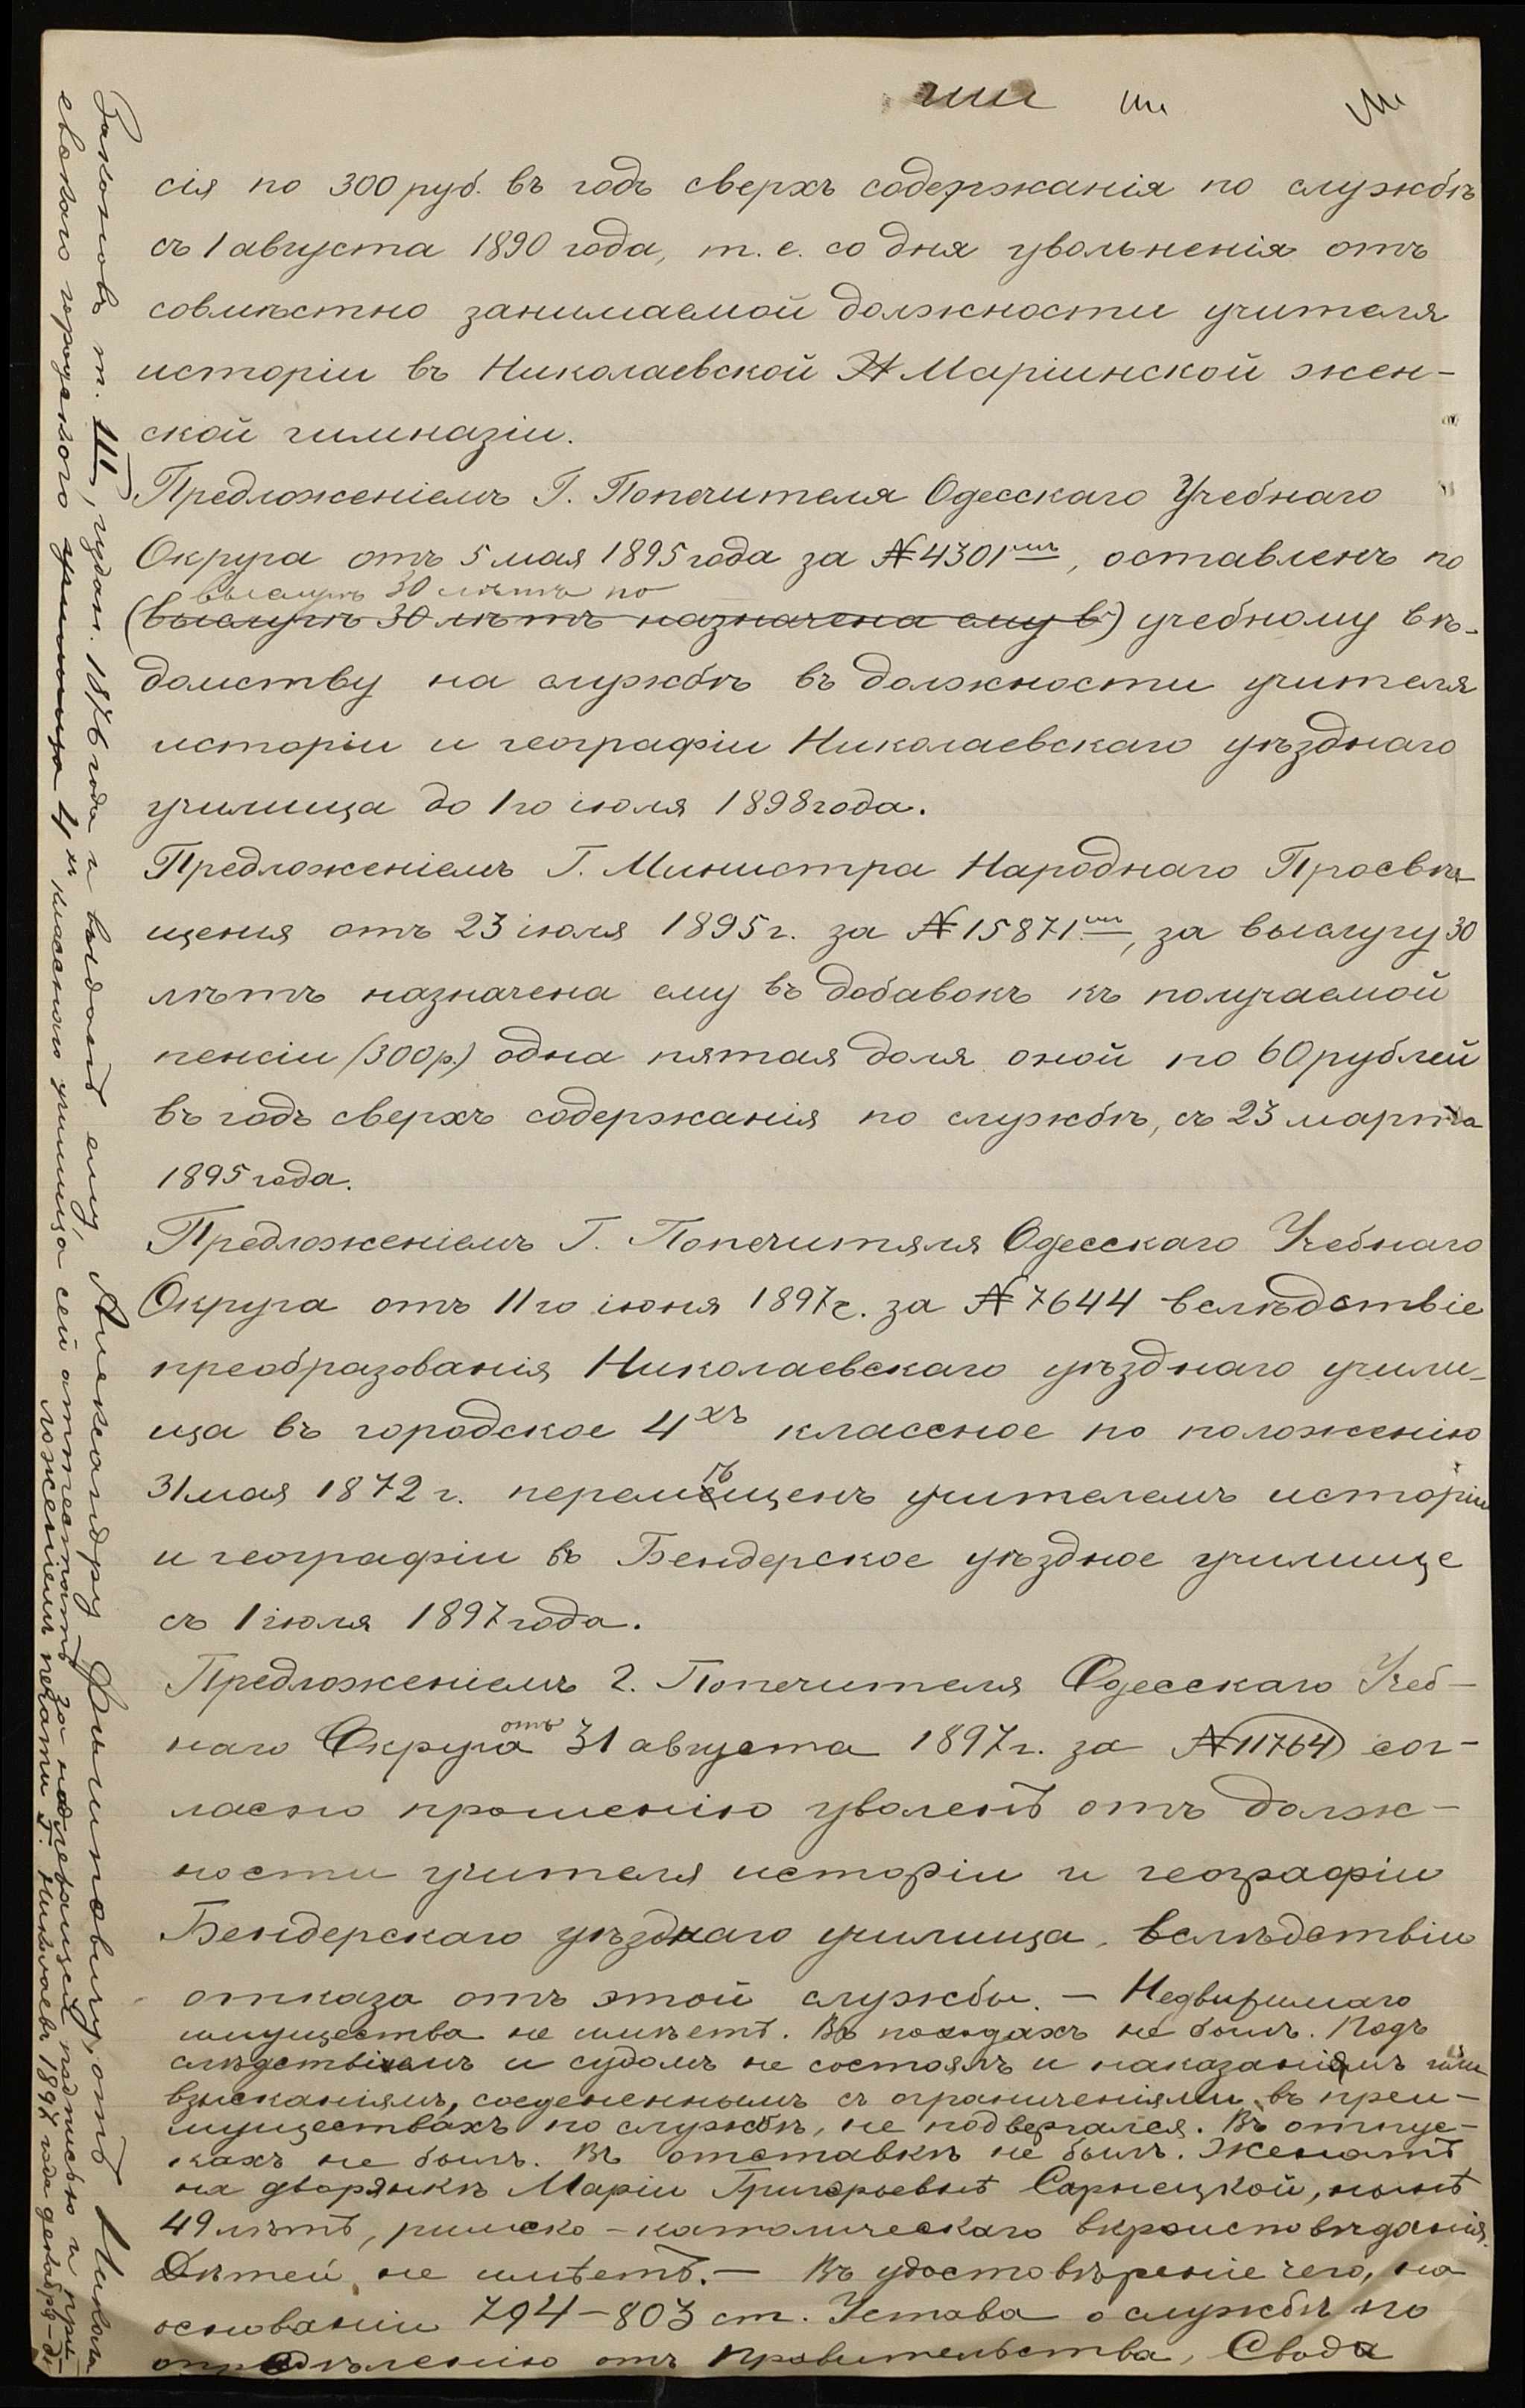 сія по 300 руб. въ годъ сверхъ содержанія по службѣ
съ 1 августа 1890 года, т. е. со дня увольненія отъ
совмѣстно занимаемой должности учителя
исторіи въ Николаевской Маріинской жен-
ской гимназіи.
Предложеніемъ Г. Попечителя Одесскаго Учебнаго
Округа отъ 5 мая 1895 года за № 4301, оставленъ по
выслугѣ 30 лѣтъ по
(выслугѣ 30 лѣтъ назначена ему в) учебному вѣ-
домству на службѣ въ должности учителя
исторіи и географіи Николаевскаго уѣзднаго
училища до 1го іюля 1898 года.
Предложеніемъ Г. Министра Народнаго Просвѣ-
щения отъ 23 іюля 1895 г. за № 15871, за выслугу 30
лѣтъ назначена ему въ добавокъ къ получаемой
пенсіи (300 р.) одна пятая доля оной по 60 рублей
въ годъ сверхъ содержанія по службѣ, съ 23 марта
1895 года.
Предложеніемъ Г. Попечитяля Одесскаго Учебнаго
Округа отъ 11го іюня 1897 г. за № 7644 вслѣдствіе
преобразованія Николаевскаго уѣзднаго учили-
ща въ городское 4хъ классное по положенію
31 мая 1872 г. перемѣщенъ учителемъ исторіи
и географіи въ Бендерское уѣздное училище
съ 1 іюля 1897 года.
Предложеніемъ г. Попечителя Одесскаго Учеб-
наго Округа отъ 31 августа 1897 г. за № 11764 сог-
ласно прошенію уволенъ отъ долж-
ности учителя исторіи и географіи
Бендерскаго уѣзднаго училища, вслѣдствіи
отказа отъ этой службы. — Недвижимаго
имущества не имѣетъ. Въ походахъ не былъ. Подъ
слѣдствіемъ и судомъ не состоялъ и наказаніямъ или
взысканіямъ, соединеннымъ съ ограниченіями въ преи-
муществахъ по службѣ, не подвергался. Въ отпус-
кахъ не былъ. Въ отставкѣ не былъ. Женатъ
на дворянкѣ Маріи Григорьевнѣ Сарнецкой, нынѣ
49 лѣтъ, римско-католическаго вѣроисповѣданія.
Дѣтей не имѣетъ. — Въ удостовѣреніе чего, на
основаніи 794–803 ст. Устава о службѣ по
опредѣленію отъ правительства, Свода
Законовъ т. III, издан. 1876 года и выданъ ему Александру Филиповичу, отъ Никола
евскаго городского училища 4хъ класснаго училища сей аттестатъ за надлежащей подписью и при-
ложеніемъ печати Г. Николаевъ 1897 года декабря